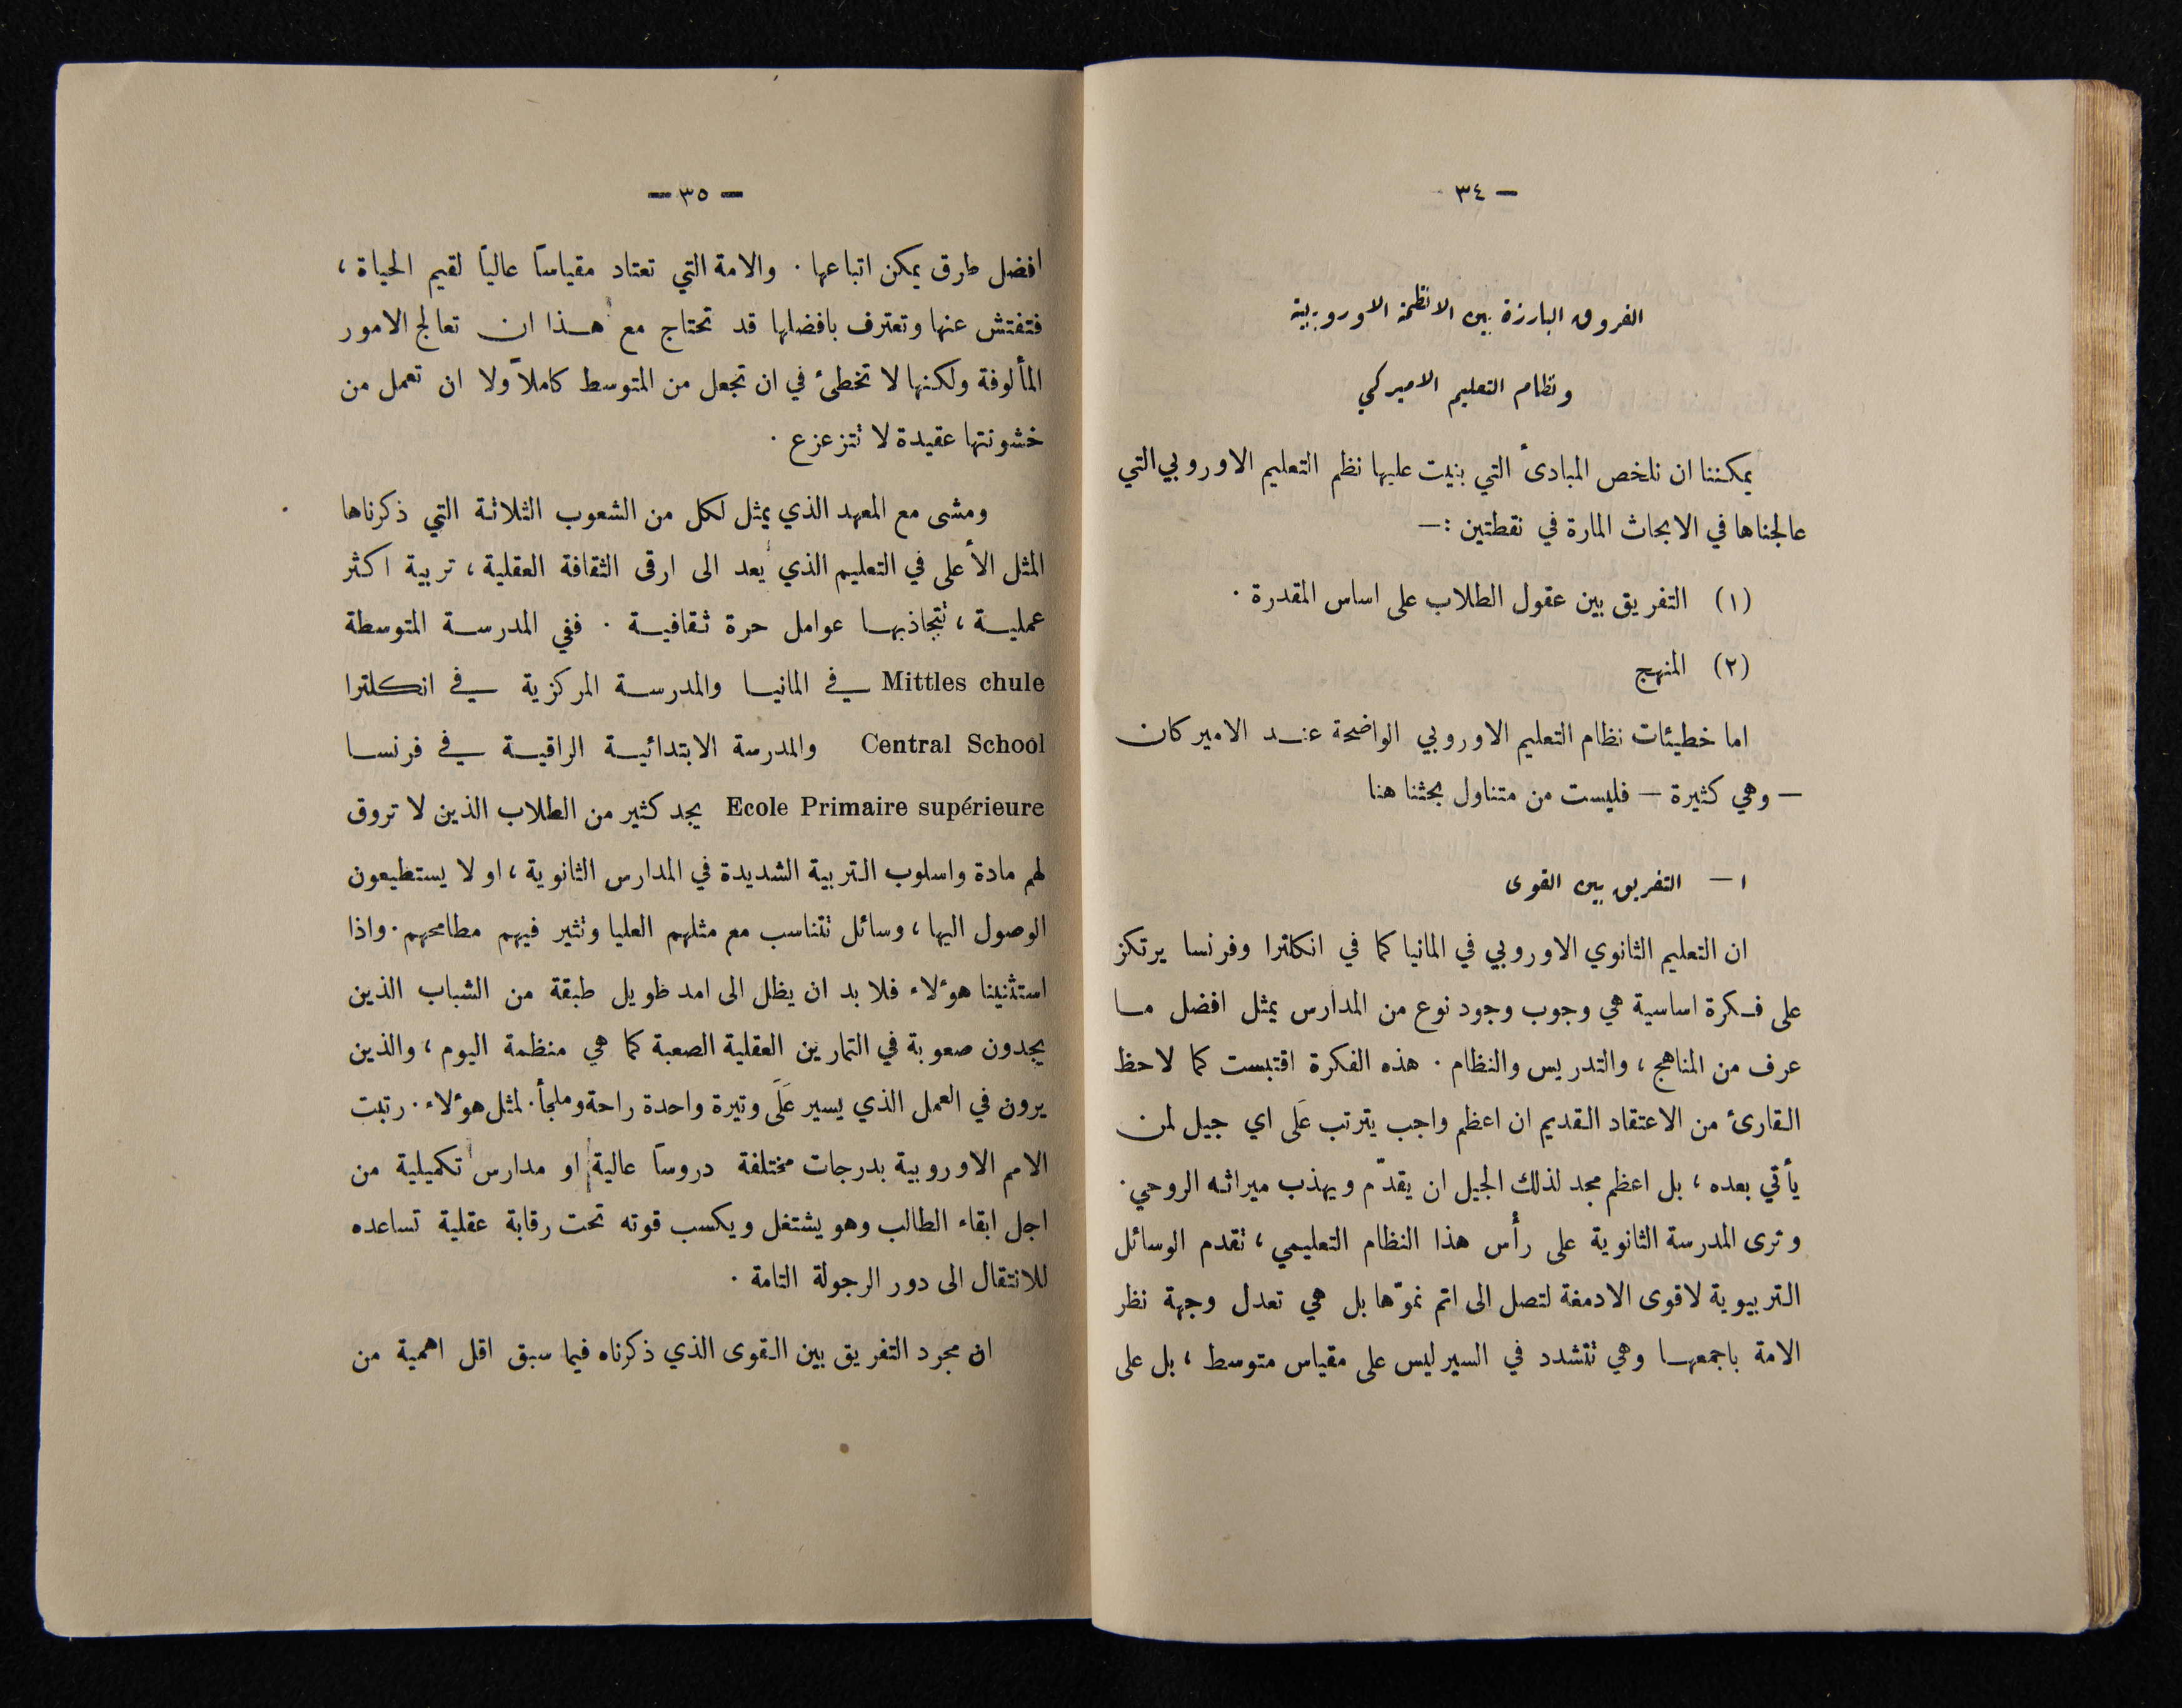 — ٣٤ —
الفروق البارزة بين الانظمة الاوروبية
ونظام التعليم الاميركي
يمكننا ان نلخص المبادئ التي بنيت عليها نظم التعليم الاوروبي التي
عالجناها في الابحاث المارة في نقطتين :—
(١) التفريق بين عقول الطلاب على اساس المقدرة .
(٢) المنهج
اما خطيئات نظام التعليم الاوروبي الواضحة عند الاميركان
— وهي كثيرة — فليست من متناول بحثنا هنا
١ — التفريق بين القوى
ان التعليم الثانوي الاوروبي في المانيا كما في انكلترا وفرنسا يرتكز
على فكرة اساسية هي وجوب وجود نوع من المدارس يمثل افضل ما
عرف من المناهج ، والتدريس والنظام . هذه الفكرة اقتبست كما لاحظ
القارئ من الاعتقاد القديم ان اعظم واجب يترتب عَلَى اي جيل لمن
يأتي بعده ، بل اعظم مجد لذلك الجيل ان يقدّم ويهذب ميراثه الروحي .
وترى المدرسة الثانوية على رأس هذا النظام التعليمي ، تقدم الوسائل
التربيوية لاقوى الادمغة لتصل الى اتم نموّها بل هي تعدل وجهة نظر
الامة باجمعها وهي تتشدد في السير ليس على مقياس متوسط ، بل على
— ٣٥ —
افضل طرق يمكن اتباعها . والامة التي تعتاد مقياساً عالياً لقيم الحياة ،
فتفتش عنها وتعترف بافضلها قد تحتاج مع هذا ان تعالج الامور
المألوفة ولكنها لا تخطئ في ان تجعل من المتوسط كاملاً ولا ان تعمل من
خشونتها عقيدة لا تتزعزع .
ومشى مع المعهد الذي يمثل لكل من الشعوب الثلاثة التي ذكرناها
المثل الأعلى في التعليم الذي يُعد الى ارقى الثقافة العقلية ، تربية اكثر
عملية ، تتجاذبها عوامل حرة ثقافية . ففي المدرسة المتوسطة
Mittles chule في المانيا والمدرسة المركزية في انكلترا
Central School والمدرسة الابتدائية الراقية في فرنسا
Ecole Primaire supérieure يجد كثير من الطلاب الذين لا تروق
لهم مادة واسلوب التربية الشديدة في المدارس الثانوية ، او لا يستطيعون
الوصول اليها ، وسائل تتناسب مع مثلهم العليا وتثير فيهم مطامحهم . واذا
استثنينا هؤلاء فلا بد ان يظل الى امد طويل طبقة من الشباب الذين
يجدون صعوبة في التمارين العقلية الصعبة كما هي منظمة اليوم ، والذين
يرون في العمل الذي يسير عَلَى وتيرة واحدة راحة وملجأ . لمثل هؤلاء . رتبت
الامم الاوروبية بدرجات مختلفة دروساً عالية او مدارس تكميلية من
اجل ابقاء الطالب وهو يشتغل ويكسب قوته تحت رقابة عقلية تساعده
للانتقال الى دور الرجولة التامة .
ان مجرد التفريق بين القوى الذي ذكرناه فيما سبق اقل اهمية من